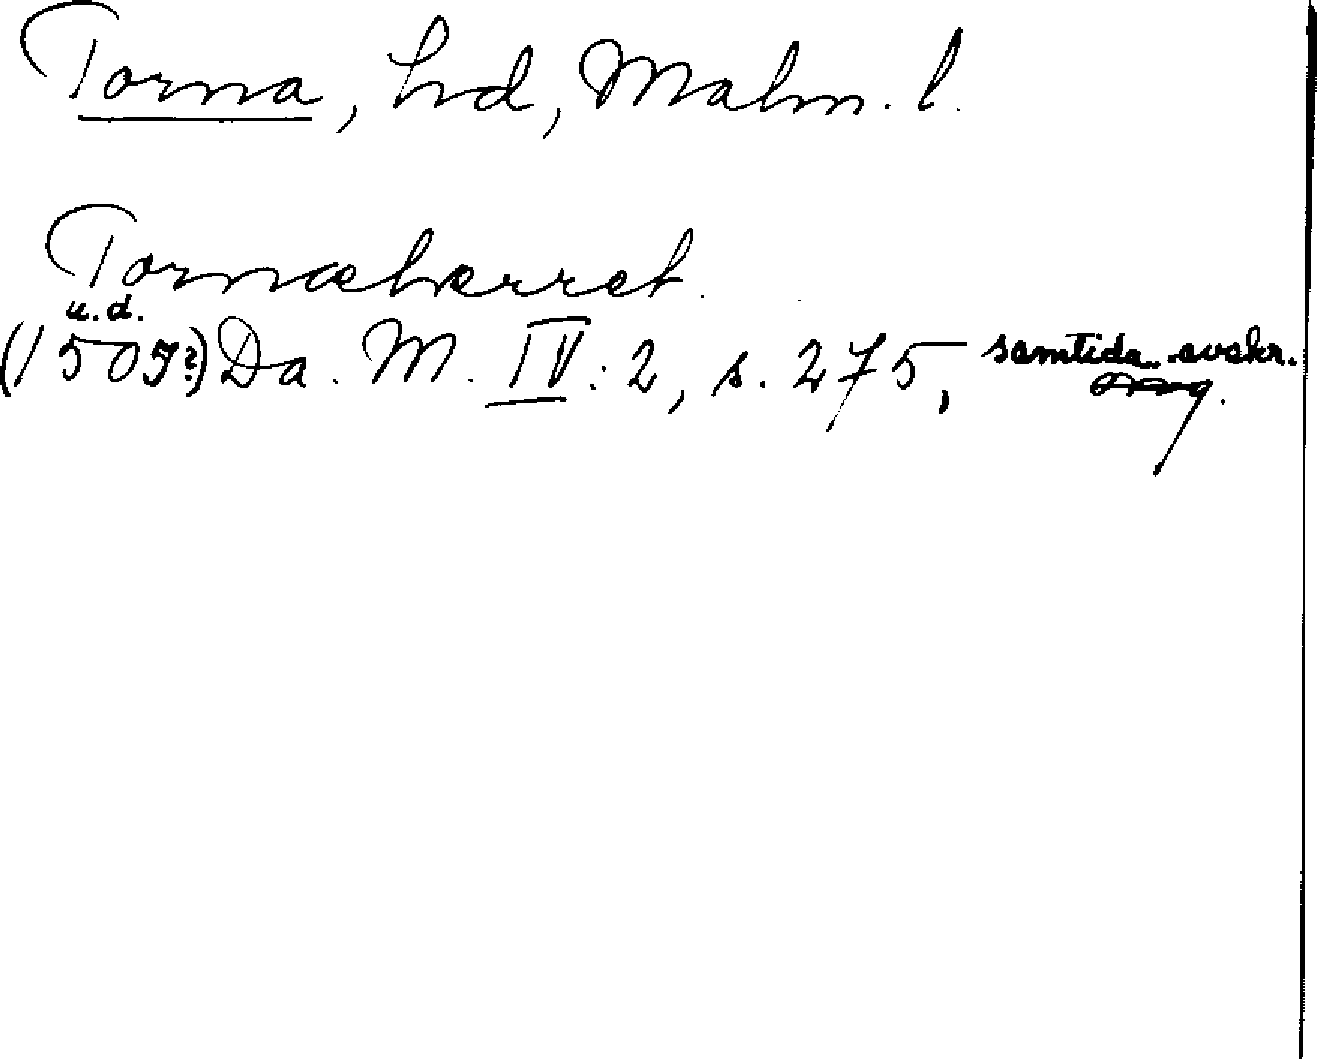 Torna, hd, Malm. l.
Tornæherret.
u.d.
(1505?) Da. M. IV: 2, s. 275, samtida avskr.